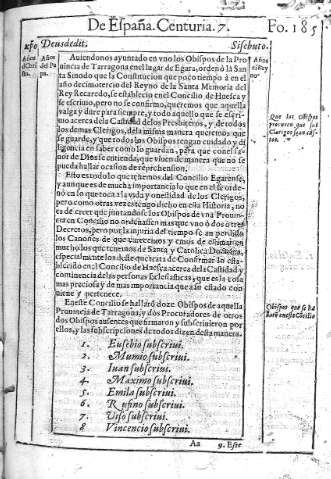 De España. Centuria. 7. Fo. 185
Deusdedit. Sisebuto.
Auiendonos ayuntado en vno los Obispos de la Pro
uincia de Tarragona en el lugar de Egara, ordenò la San
ta Sinodo que la Constitucion que poco tiempo à en el
año decimotercio del Reyno de la Santa Memoria del
Rey Recaredo, se establecio en el Concilio de Huesca y
se escriuio, pero no se confirmo, queremos que aquella
valga y dure para siempre, y todo aquello que se esta
criuio acerca de la Castidad de los Presbiteros, y de to
los demas Clerigos, de la misma manera queremos que
se guarde, y que todos los Obispos tengan cuidado y di
ligencia en saber como lo guardan, para que
de Dios se entienda, que viuen de manera que no se
pueda hallar ocasion de reprehension.
Esto es todo lo que tenemos del Concilio Egarense,
y aunque es de mucha importancia lo que en el se orde
nò en lo que toca a la vida y onestidad de los Clerigos,
pero como otras vezes tengo dicho en esta Historia, no
es de creer que juntandose los Obispos de vna Prouin
cia en Concilio no ordenassen mas que vno ò dos ò tres
Decretos, pero por la injuria del tiempo se an perdido
los Canones de que carecemos y emos de estimar en
mucho los que tenemos de Santa y Catolica Doctrina,
especialmente los deste que trata de Confirmar lo esta
blecido en el Concilio de Huesca acerca de la Castidad y
continencia de las personas Eclesiasticas, que es la cosa
mas preciosa y de mas importancia que a se estado con
uiene y pertenece.
En este Concilio se hallarõ doze Obispos de aquella
Prouincia de Tarragona, y dos Procuradores de otros
dos Obispos ausentes que firmaron y subscriuieron por
ellos, y las subscripciones de todos dizen desta manera.
1. Eusebio subscriui.
2. Mumio subscriui.
3. Iuan subscriui.
4. Maximo subscriui.
5. Emila subscriui.
6. Rufino subscriui.
7. Viso subscriui.
8 Vincencio subscriui.
Aa 9. Este
Que los Obispos
procuren que los
Clerigos sean cas-
tos.
Obispos que se ha